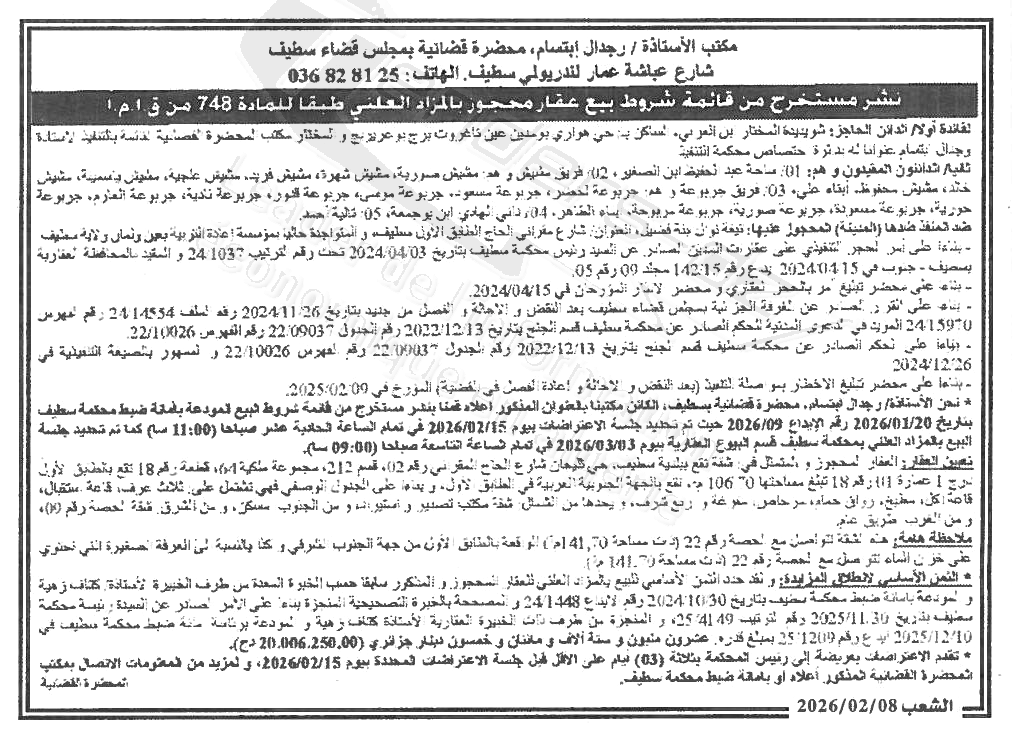 مكتب الأستاذة / رجدال إبتسام، محضرة قضائية بمجلس قضاء سطيف
شارع عباشة عمار لندريولي سطيف. الهاتف: 25 81 82 036
نشر مستخرج من قائمة شروط بيع عقار محجوز بالمزاد العلني طبقا للمادة 748 من ق.إ.م.إ
لفائدة أولا/ الدائن الحاجز: شويديدة المختار بن العربي، الساكن بـ حي هواري بومدين عين تاغروت برج بوعريريج و المختار مكتب المحضرة القضائية القائمة بالتنفيذ الأستاذة
رجدال ابتسام عنوانا له بدائرة اختصاص محكمة التنفيذ
ثانيا/ الدائنون المقيدون و هم: 01/ ساحة عبد الحفيظ ابن الصغير، 02/ فريق مشيش و هم: مشيش صورية، مشيش شهرة، مشيش فريد، مشيش علجية، مشيش ياسمينة، مشيش
خالد، مشيش محفوظ، أبناء علي، 03/ فريق جربوعة و هم: جربوعة لخضر، جربوعة مسعود، جربوعة موسى، جربوعة النوي، جربوعة نادية، جربوعة العارم، جربوعة
حورية، جربوعة مسعودة، جربوعة صورية، جربوعة مربوحة، أبناء الطاهر، 04/ الهادي ابن بوجمعة، 05/ أحمد.
ضد المنفذ ضدها (المدينة) المحجوز عليها: نوال فضيل، العنوان/ شارع مقراني الحاج الطابق الأول سطيف، و المتواجدة حاليا بمؤسسة إعادة التربية بعين ولمان ولاية سطيف
- بناءا على أمر الحجز التنفيذي على عقارات المدين الصادر عن السيد رئيس محكمة سطيف بتاريخ 2024/04/03 تحت رقم الترتيب 24/1037 و المقيد بالمحافظة العقارية
بسطيف - جنوب في 2024/04/15 إيداع رقم 142/15 مجلد 09 رقم 05.
- بناءا على محضر تبليغ أمر بالحجز العقاري و محضر الإنذار المؤرخان في 2024/04/15.
- بناءا على القرار الصادر عن الغرفة الجزائية بمجلس قضاء سطيف بعد النقض و الإحالة و الفصل من جديد بتاريخ 2024/11/26 رقم الملف 24/14554 رقم الفهرس
24/15970 المؤيد في الدعوى المدنية للحكم الصادر عن محكمة سطيف قسم الجنح بتاريخ 2022/12/13 رقم الجدول 22/09037 رقم الفهرس 22/10026.
- بناءا على الحكم الصادر عن محكمة سطيف قسم الجنح بتاريخ 2022/12/13 رقم الجدول 22/09037 رقم الفهرس 22/10026 و الممهور بالصيغة التنفيذية في
2024/12/26
- بناءا على محضر تبليغ الإخطار بمواصلة التنفيذ (بعد النقض و الإحالة و إعادة الفصل في القضية) المؤرخ في 2025/02/09.
* نحن الأستاذة/ رجدال ابتسام، محضرة قضائية بسطيف، الكائن مكتبنا بالعنوان المذكور أعلاه قمنا بنشر مستخرج من قائمة شروط البيع المودعة بأمانة ضبط محكمة سطيف
بتاريخ 2026/01/20 رقم الإيداع 2026/09 حيث تم تحديد جلسة الاعتراضات بيوم 2026/02/15 في تمام الساعة الحادية عشر صباحا (11:00 سا) كما تم تحديد جلسة
البيع بالمزاد العلني بمحكمة سطيف قسم البيوع العقارية بيوم 2026/03/03 في تمام الساعة التاسعة صباحا (09:00 سا).
تعيين العقار: العقار المحجوز و المتمثل في: شقة تقع ببلدية سطيف، حي شارع الحاج المقراني رقم 02، قسم 212، مجموعة ملكية 64، قطعة رقم 18 تقع بالطابق الأول
درج 1 عمارة 01 رقم 18 تبلغ مساحتها 106.70 م²، تقع بالجهة الجنوبية الغربية في الطابق الأول، و بناءا على الجدول الوصفي فهي تشتمل على: ثلاث غرف، قاعة استقبال،
قاعة أكل، مطبخ، رواق، حمام، مرحاض، و أربع شرف، و يحدها من الشمال: شقة مكتب تصدير و استيراد، و من الجنوب: مسكن، و من الشرق: شقة الحصة رقم 09،
و من الغرب: طريق عام.
ملاحظة هامة: هذه الشقة تتواصل مع الحصة رقم 22 (ذات مساحة 141,70م²) الواقعة بالطابق الأول من جهة الجنوب الشرقي و كذا بالنسبة إلى الغرفة الصغيرة التي تحتوي
على خزان الماء تتواصل مع الحصة رقم 22 (ذات مساحة 141.70 م²).
* الثمن الأساسي لانطلاق المزايدة: و لقد حدد الثمن الأساسي للبيع بالمزاد العلني للعقار المحجوز و المذكور سابقا حسب الخبرة المعدة من طرف الخبيرة الأستاذة/ كتاف زهية
و المودعة بأمانة ضبط محكمة سطيف بتاريخ 2024/10/30 رقم الإيداع 24/1448 و المصححة بالخبرة التصحيحية المنجزة بناءا على الأمر الصادر عن السيدة رئيسة محكمة
سطيف بتاريخ 2025/11/30 رقم الترتيب 25/4149، و المنجزة من طرف ذات الخبيرة العقارية الأستاذة كتاف زهية و المودعة برئاسة أمانة ضبط محكمة سطيف في
2025/12/10 إيداع رقم 25/1209 بمبلغ قدره: عشرون مليون و ستة آلاف و مائتان و خمسون دينار جزائري (20.006.250,00 دج).
* تقدم الاعتراضات بعريضة إلى رئيس المحكمة بثلاثة (03) أيام على الأقل قبل جلسة الاعتراضات المحددة بيوم 2026/02/15، و لمزيد من المعلومات الاتصال بمكتب
المحضرة القضائية المذكور أعلاه أو بأمانة ضبط محكمة سطيف. المحضرة القضائية
الشعب 2026/02/08